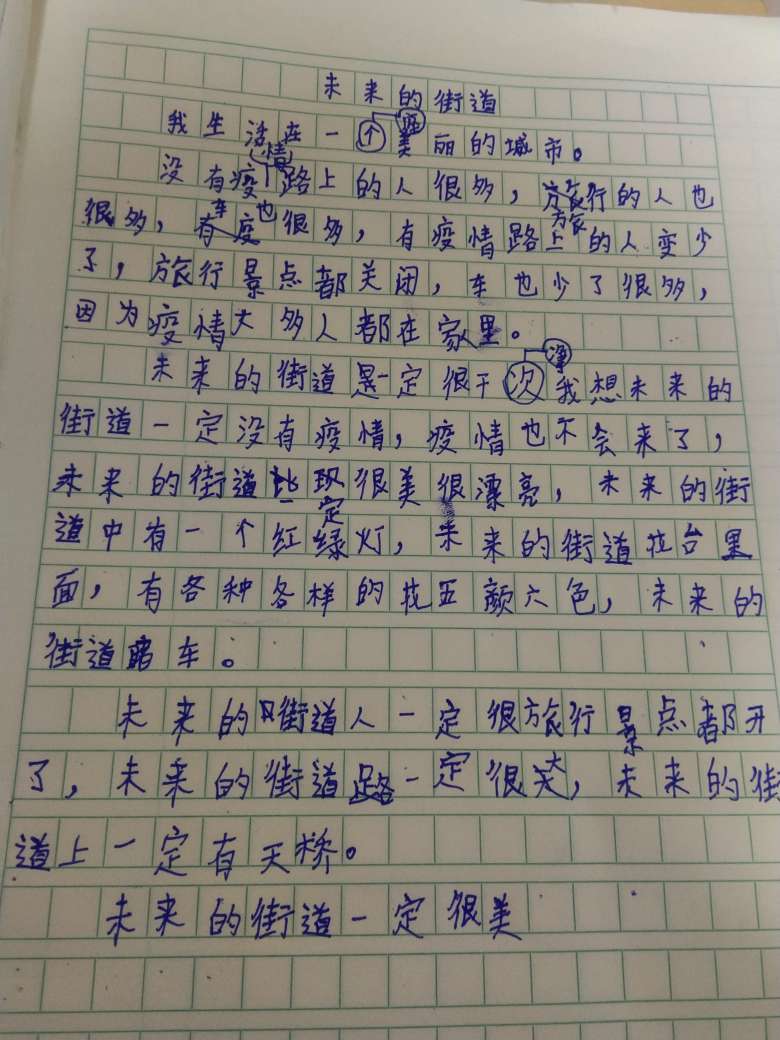 未来的街道
我生活在一个美丽的城市。
没有疫情路上的人很多，旅行的人也
很多，车也很多，有疫情路上的人变少
了，旅行景点都关闭，车也少了很多，
因为疫情大多人都在家里。
未来的街道一定很干净我想未来的
街道一定没有疫情，疫情也不会来了，
未来的街道比现很美很漂亮，未来的街
道中有一个红绿灯，未来的街道花台里
面，有各种各样的花五颜六色，未来的
街道车。
未来的街道人一定很旅行景点都开
了，未来的街道路一定很大，未来的街
道上一定有天桥。
未来的街道一定很美